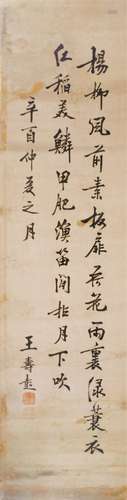 楊柳風前素板扉荇花雨裏綠蓑衣
紅稻美鱗甲肥漁笛閒拈月下吹
辛酉仲夏之月
王壽彭